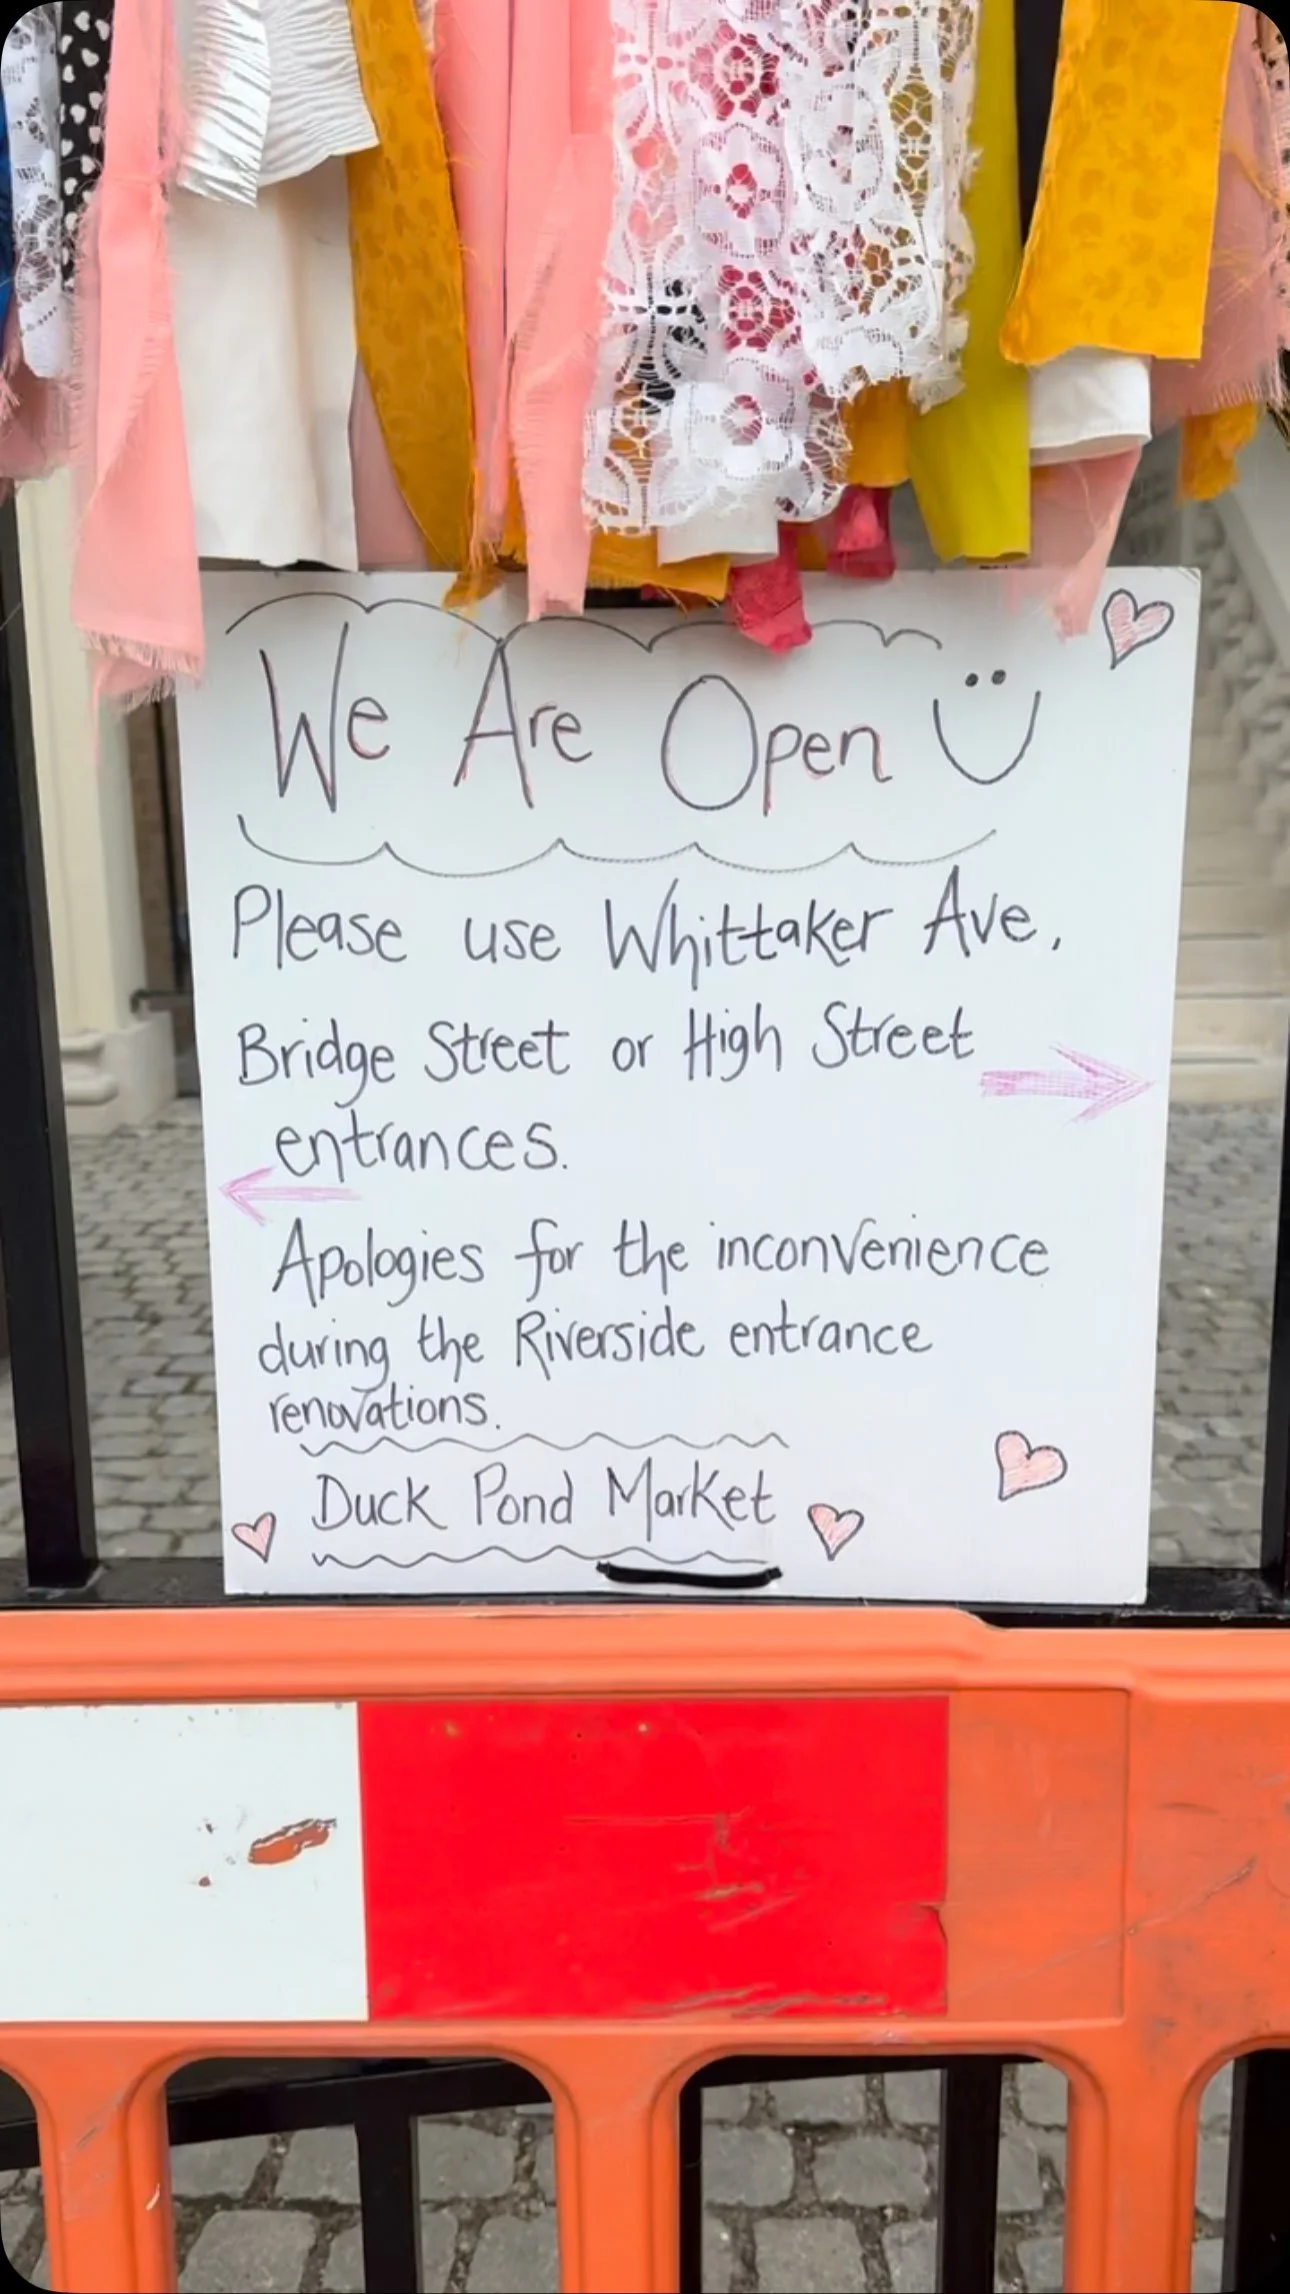 We Are Open
Please use Whittaker Ave,
Bridge Street or High Street
entrances.
Apologies for the inconvenience
during the Riverside entrance
renovations.
Duck Pond Market